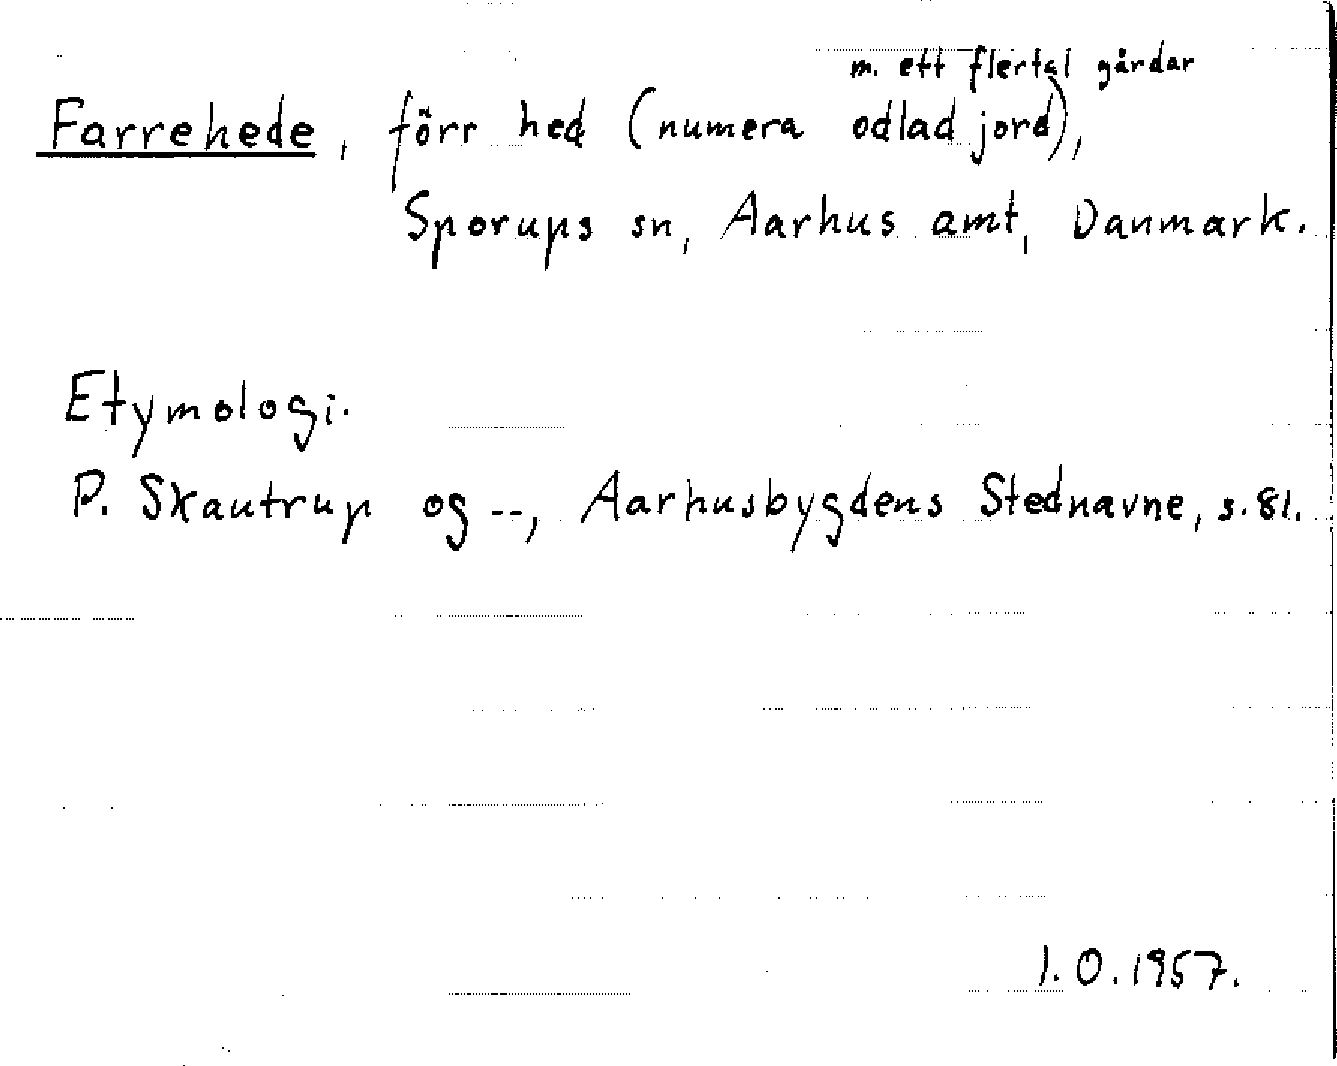 m. ett flertal gårdar
Farrehede, förr hed (numera odlad jord),
Sporups sn, Aarhus amt, Danmark.
Etymologi.
P. Skautrup og --, Aarhusbygdens Stednavne, s. 81.
I. O. 1957.